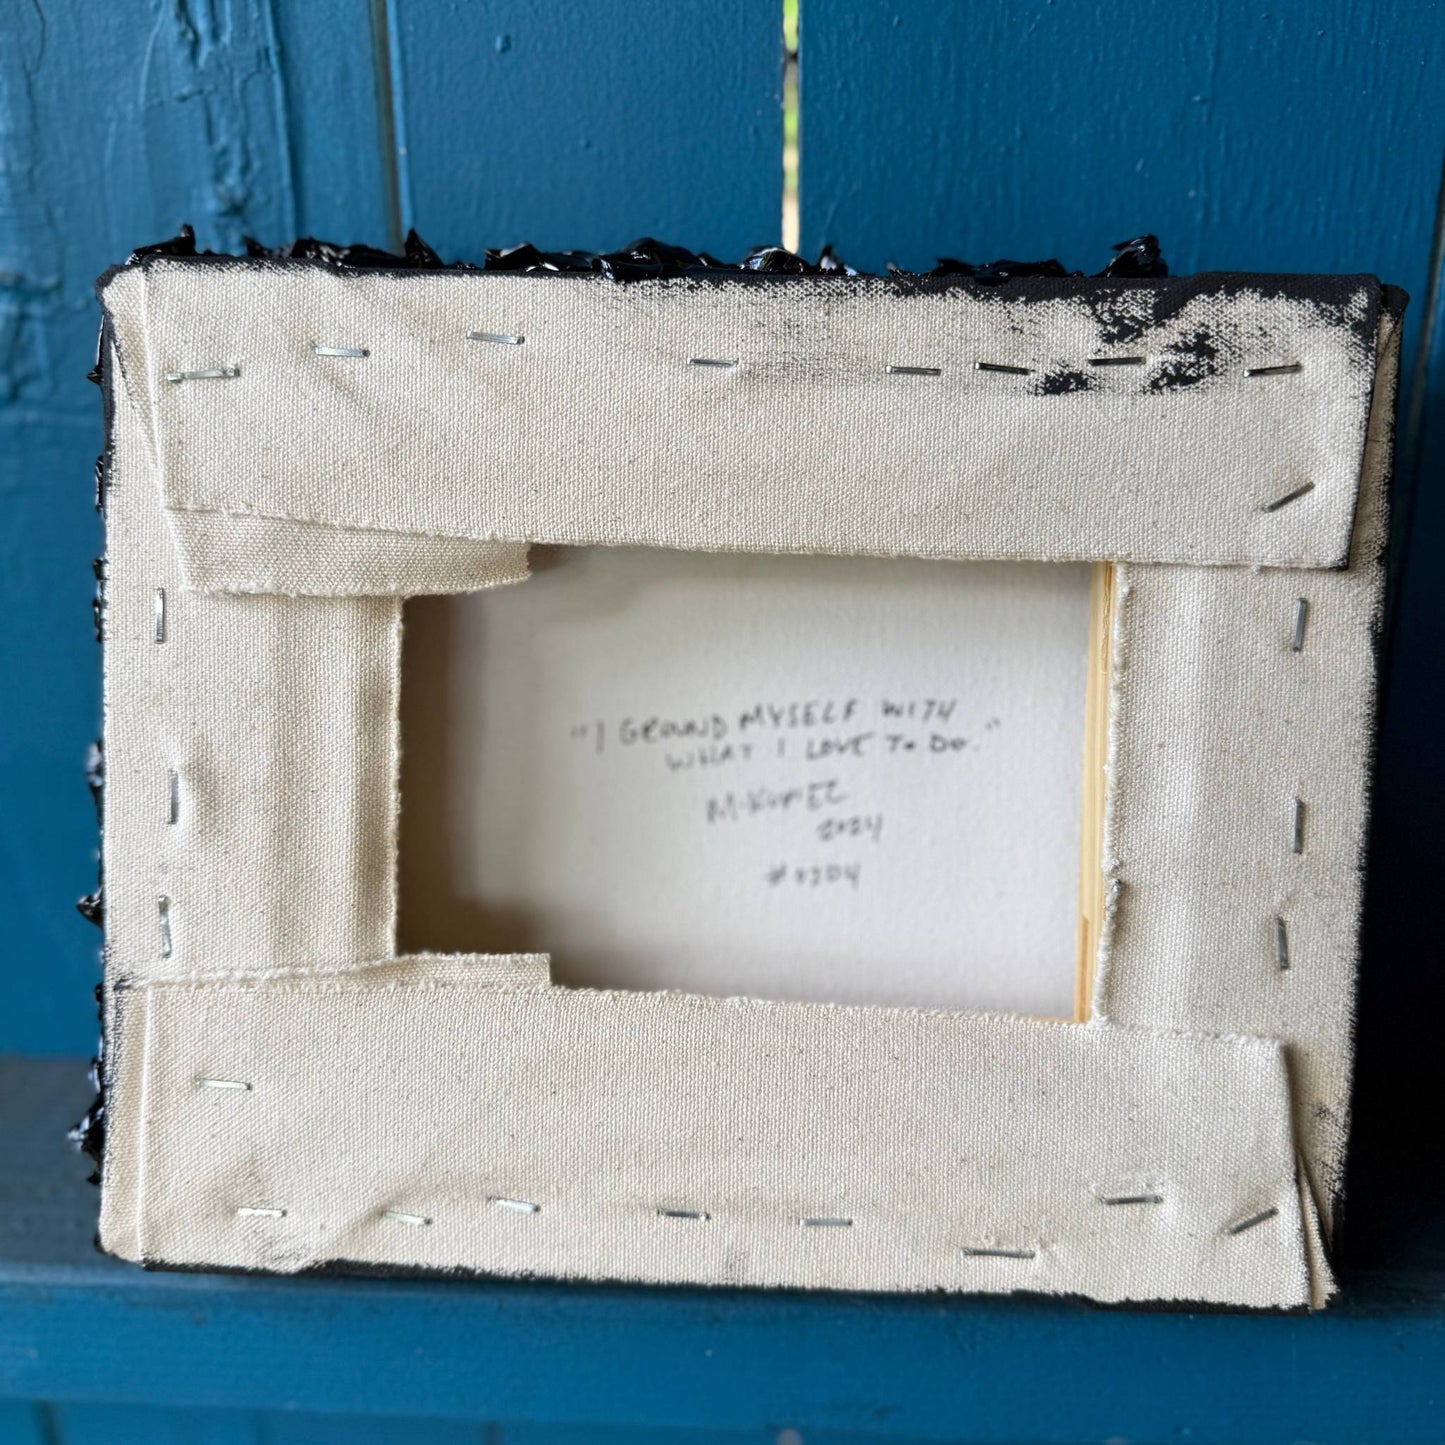 "I GROUND MYSELF WITH
WHAT I LOVE TO DO."
M. KUPIEC
2024
#0204